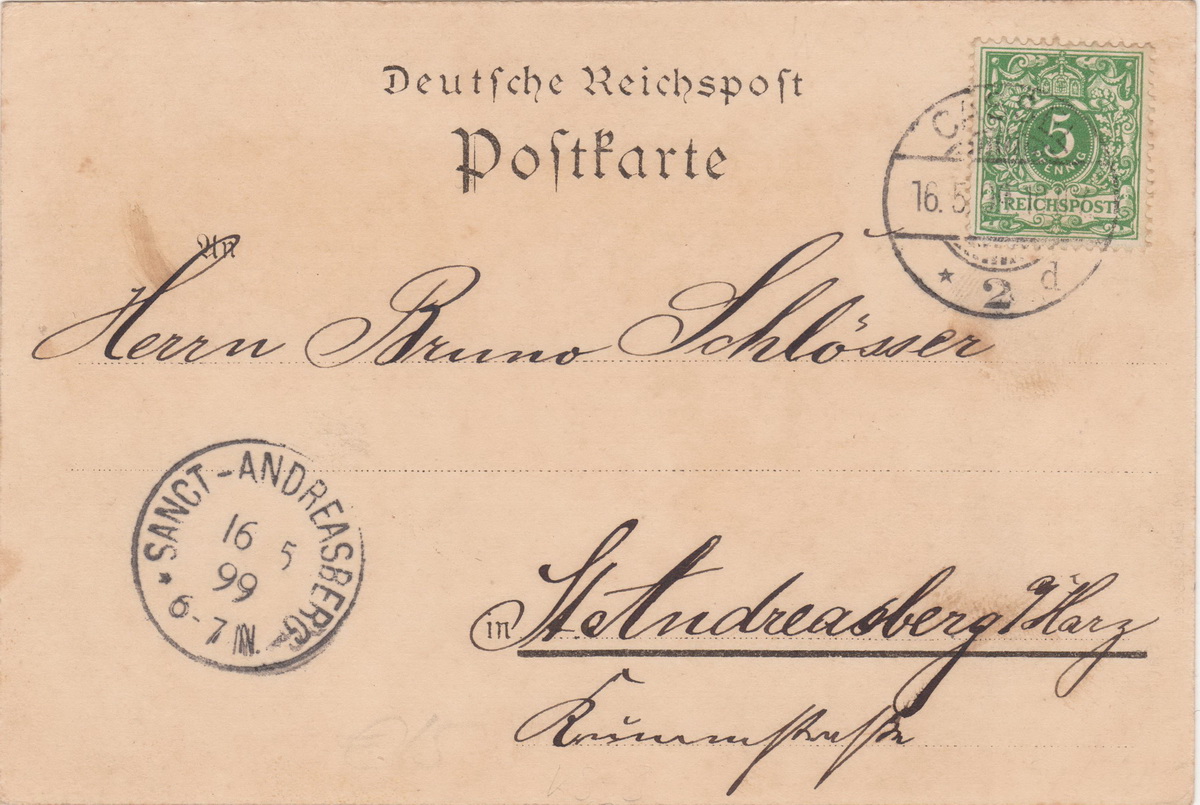 Deutsche Reichspost
Postkarte
5
PFENNIG
REICHSPOST
16. 5.
* 2 d
An
Herrn Bruno Schlösser
SANCT-ANDREASBERG
16 5
99
* 6-7 N.
in St. Andreasberg i/Harz
Krummstraße